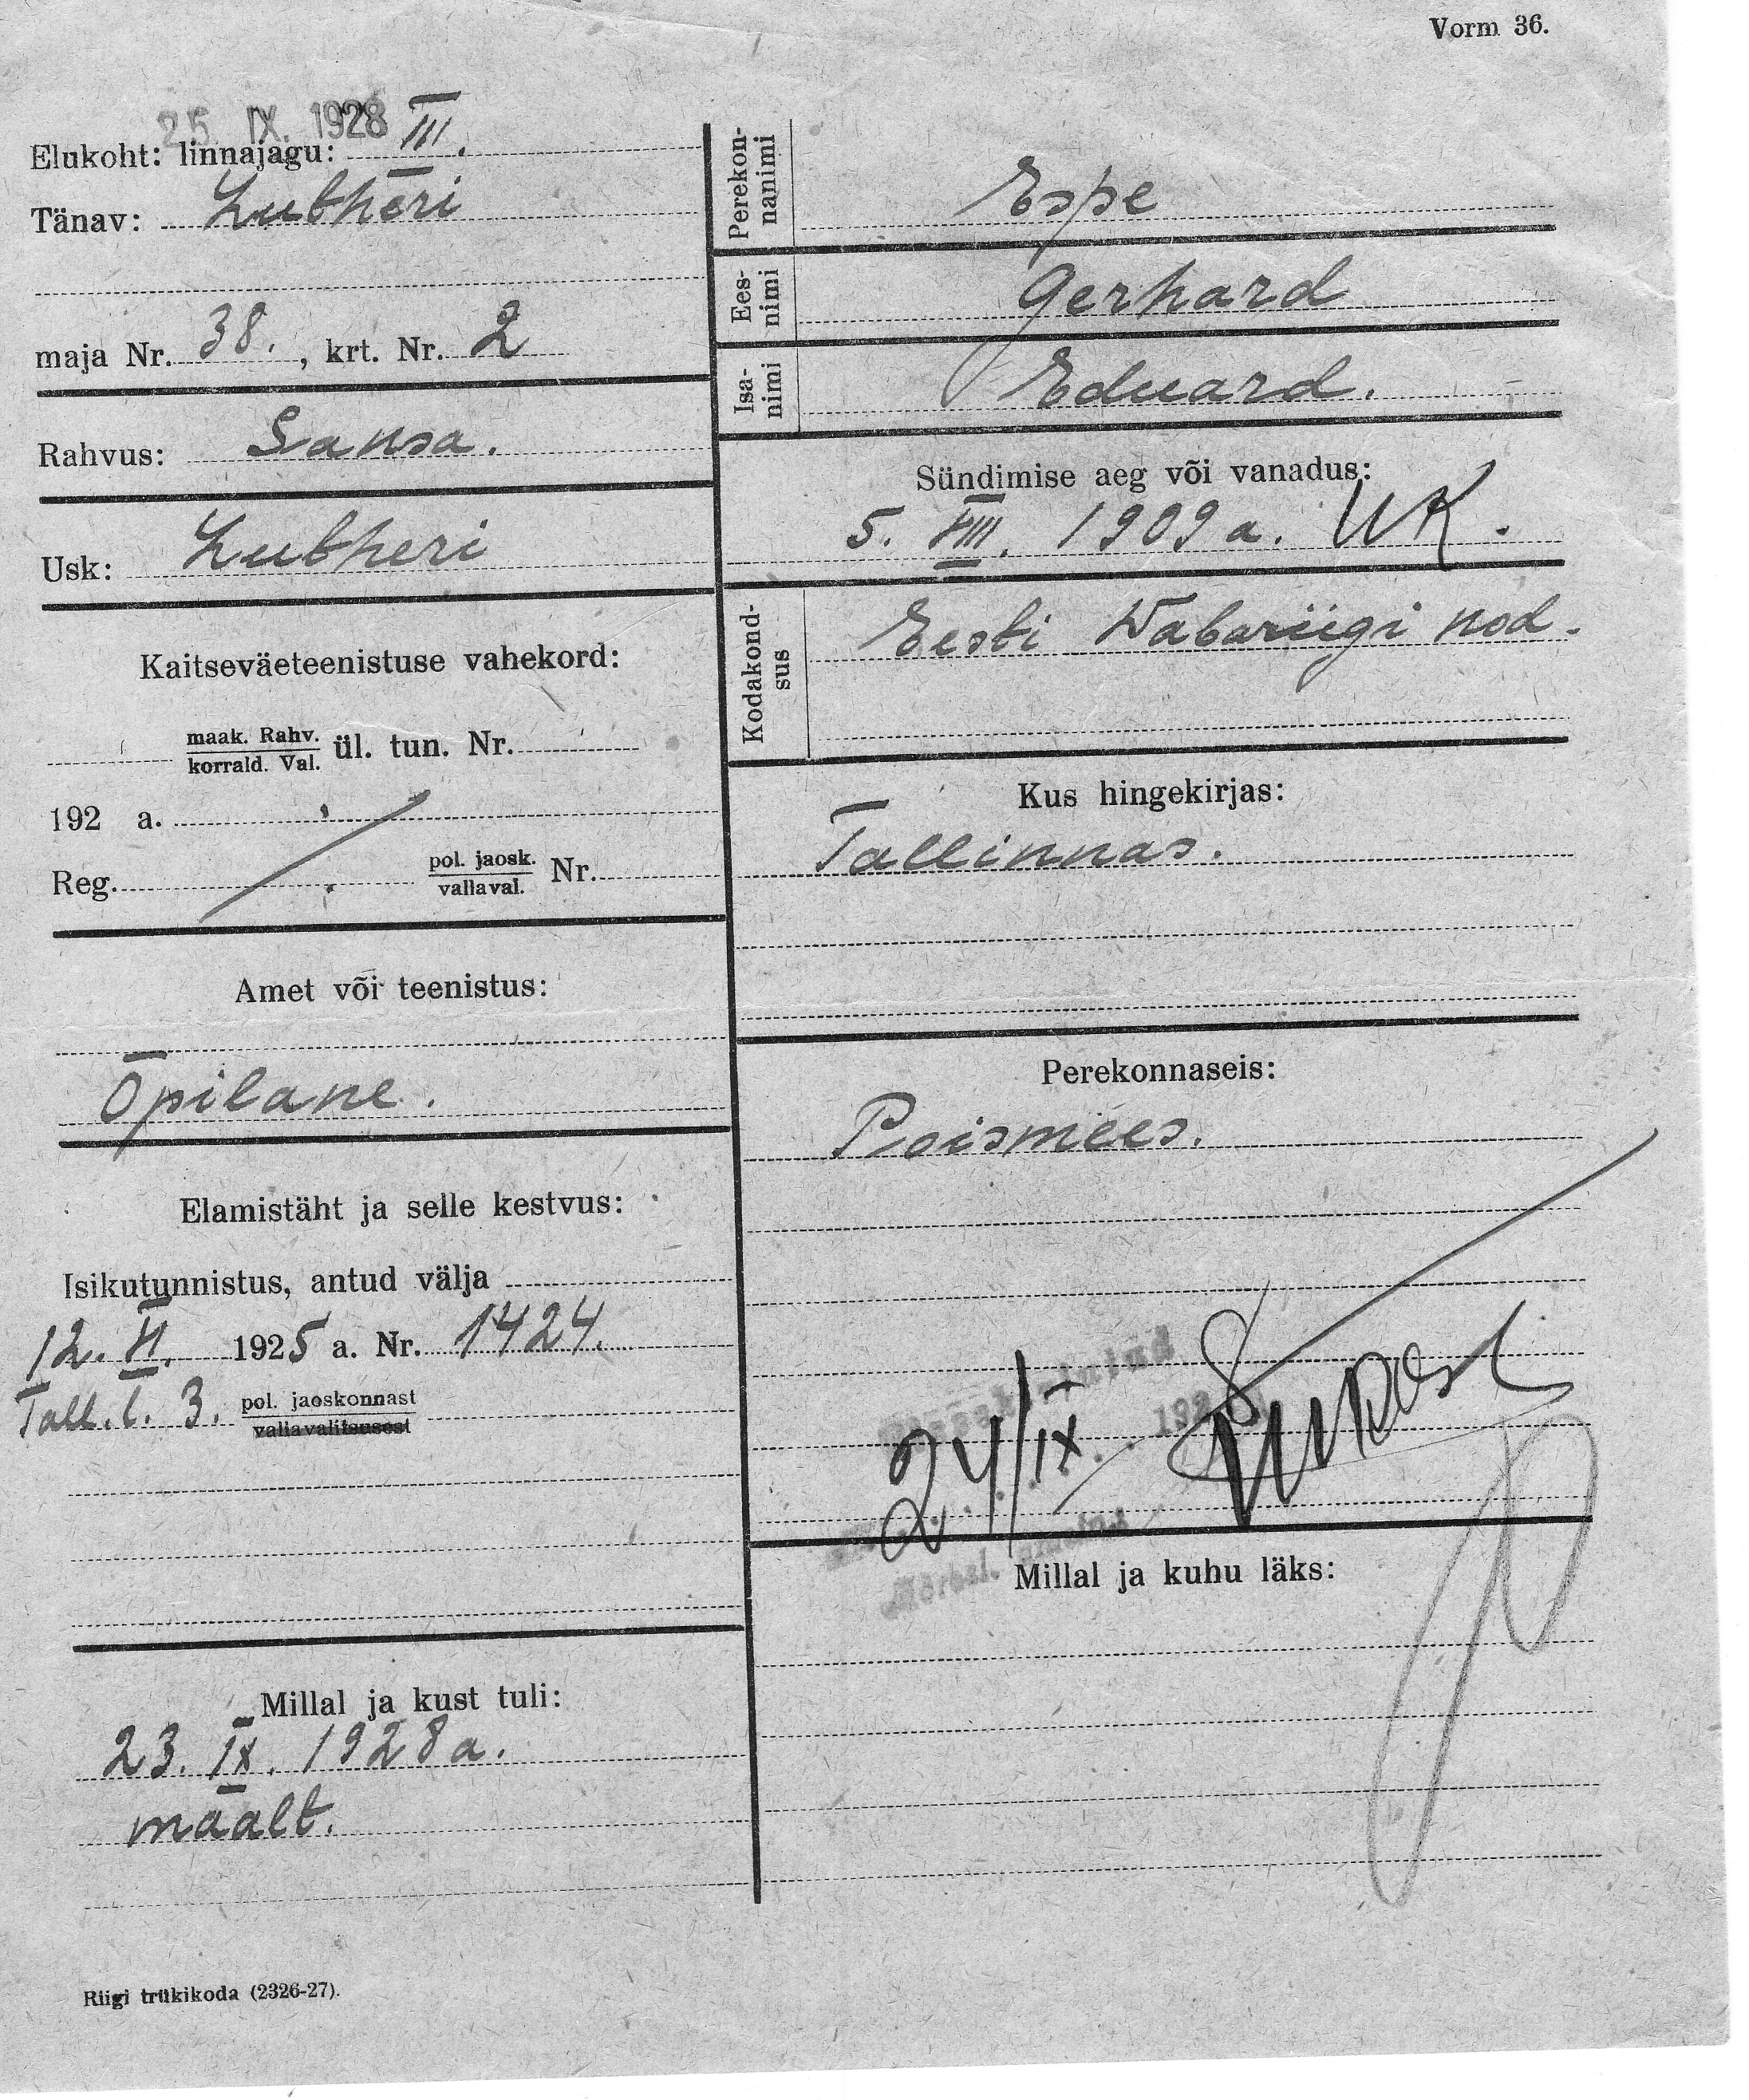 Vorm 36.
25. IX. 1928
Elukoht: linnajagu: III.
Tänav: Lutheri
maja Nr. 38. , krt. Nr. 2
Rahvus: Saksa.
Usk: Lutheri
Kaitseväeteenistuse vahekord:
maak. Rahv.
korrald. Val. ül. tun. Nr.
192 a.
Reg. pol. jaosk.
vallaval. Nr.
Amet või teenistus:
Õpilane.
Elamistäht ja selle kestvus:
Isikutunnistus, antud välja
12. VI. 1925 a. Nr. 1424.
Tall. l. 3. pol. jaoskonnast
vallavalitsusest
Millal ja kust tuli:
23. IX. 1928 a.
maalt.
Riigi trükikoda (2326-27).
Perekon-
nanimi
Espe
Ees-
nimi
Gerhard
Isa-
nimi
Eduard.
Sündimise aeg või vanadus:
5. VIII. 1909 a. WK.
Kodakond-
sus
Eesti Wabariigi kod.
Kus hingekirjas:
Tallinnas.
Perekonnaseis:
Poismees.
24/IX
Millal ja kuhu läks: